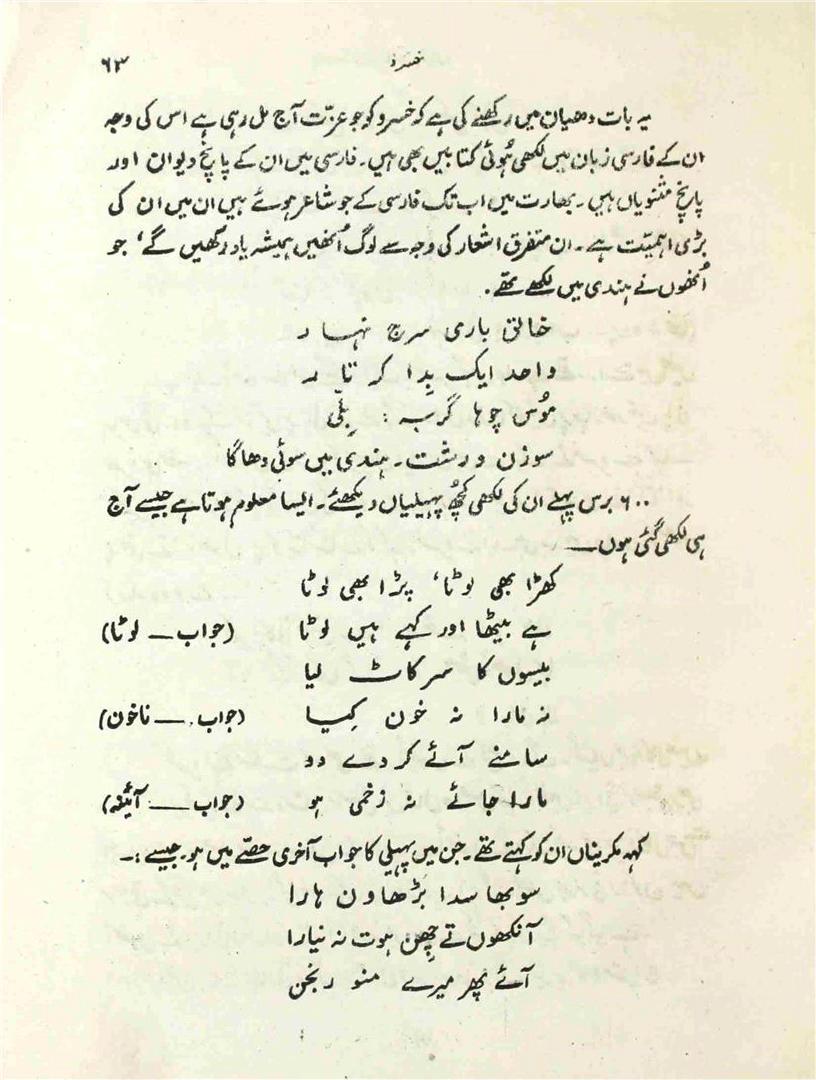 خسرو ۶۳
یہ بات دھیان میں رکھنے کی ہے کہ خسرو کو جو عزّت آج مل رہی ہے اس کی وجہ
ان کے فارسی زبان میں لکھی ہُوئی کتابیں بھی ہیں۔ فارسی میں ان کے پانچ دیوان اور
پانچ مثنویاں ہیں۔ بھارت میں اب تک فارسی کے جو شاعر ہوئے ہیں ان میں ان کی
بڑی اہمیّت ہے۔ ان متفرق اشعار کی وجہ سے لوگ اُنھیں ہمیشہ یاد رکھیں گے، جو
اُنھوں نے ہندی میں لکھے تھے۔
خالق باری سرج نہار
واحد ایک بِدا کرتار
مُوس چوہا گربہ : بلّی
سوزن و رشت۔ ہندی میں سوئی دھاگا
۶۰۰ برس پہلے ان کی لکھی کچھ پہیلیاں دیکھئے۔ ایسا معلوم ہوتا ہے جیسے آج
ہی لکھی گئی ہوں ــــ
کھڑا بھی لوٹا، پڑا بھی لوٹا
ہے بیٹھا اور کہے ہیں لوٹا (جواب ــ لوٹا)
بیسوں کا سر کاٹ لیا
نہ مارا نہ خون کِیا (جواب ــ ناخون)
سامنے آئے کر دے دو
مارا جائے نہ زخمی ہو (جواب ــ آئینہ)
کہہ مکریناں ان کو کہتے تھے۔ جن میں پہیلی کا جواب آخری حصّے میں ہو۔ جیسے :۔
سوبھا سدا بڑھاون ہارا
آنکھوں تے چھِن ہوت نہ نیارا
آئے پھر میرے منو رنجن